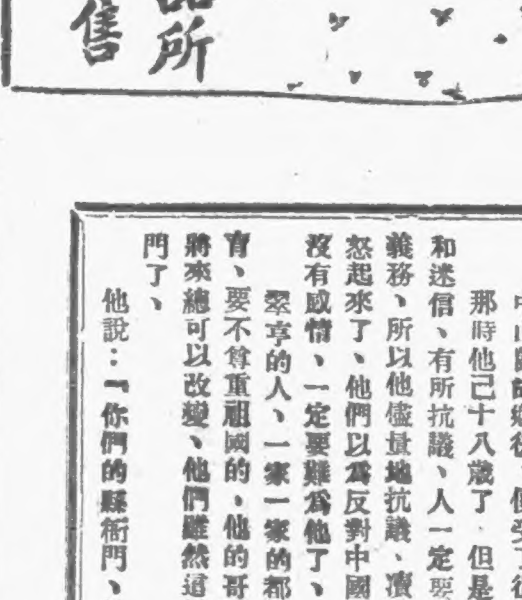 所
售
那時他已十八歲了、但是
和迷信、有所抗議、人一定要
義務、所以他儘量地抗議、凟
怒起來了、他們以爲反對中國
沒有感情、一定要難爲他了、
翠亨的人、一家一家的都
育、要不尊重祖國的、他的哥
將來總可以改變、他們雖然這
門了、
他說：「你們的縣衙門、